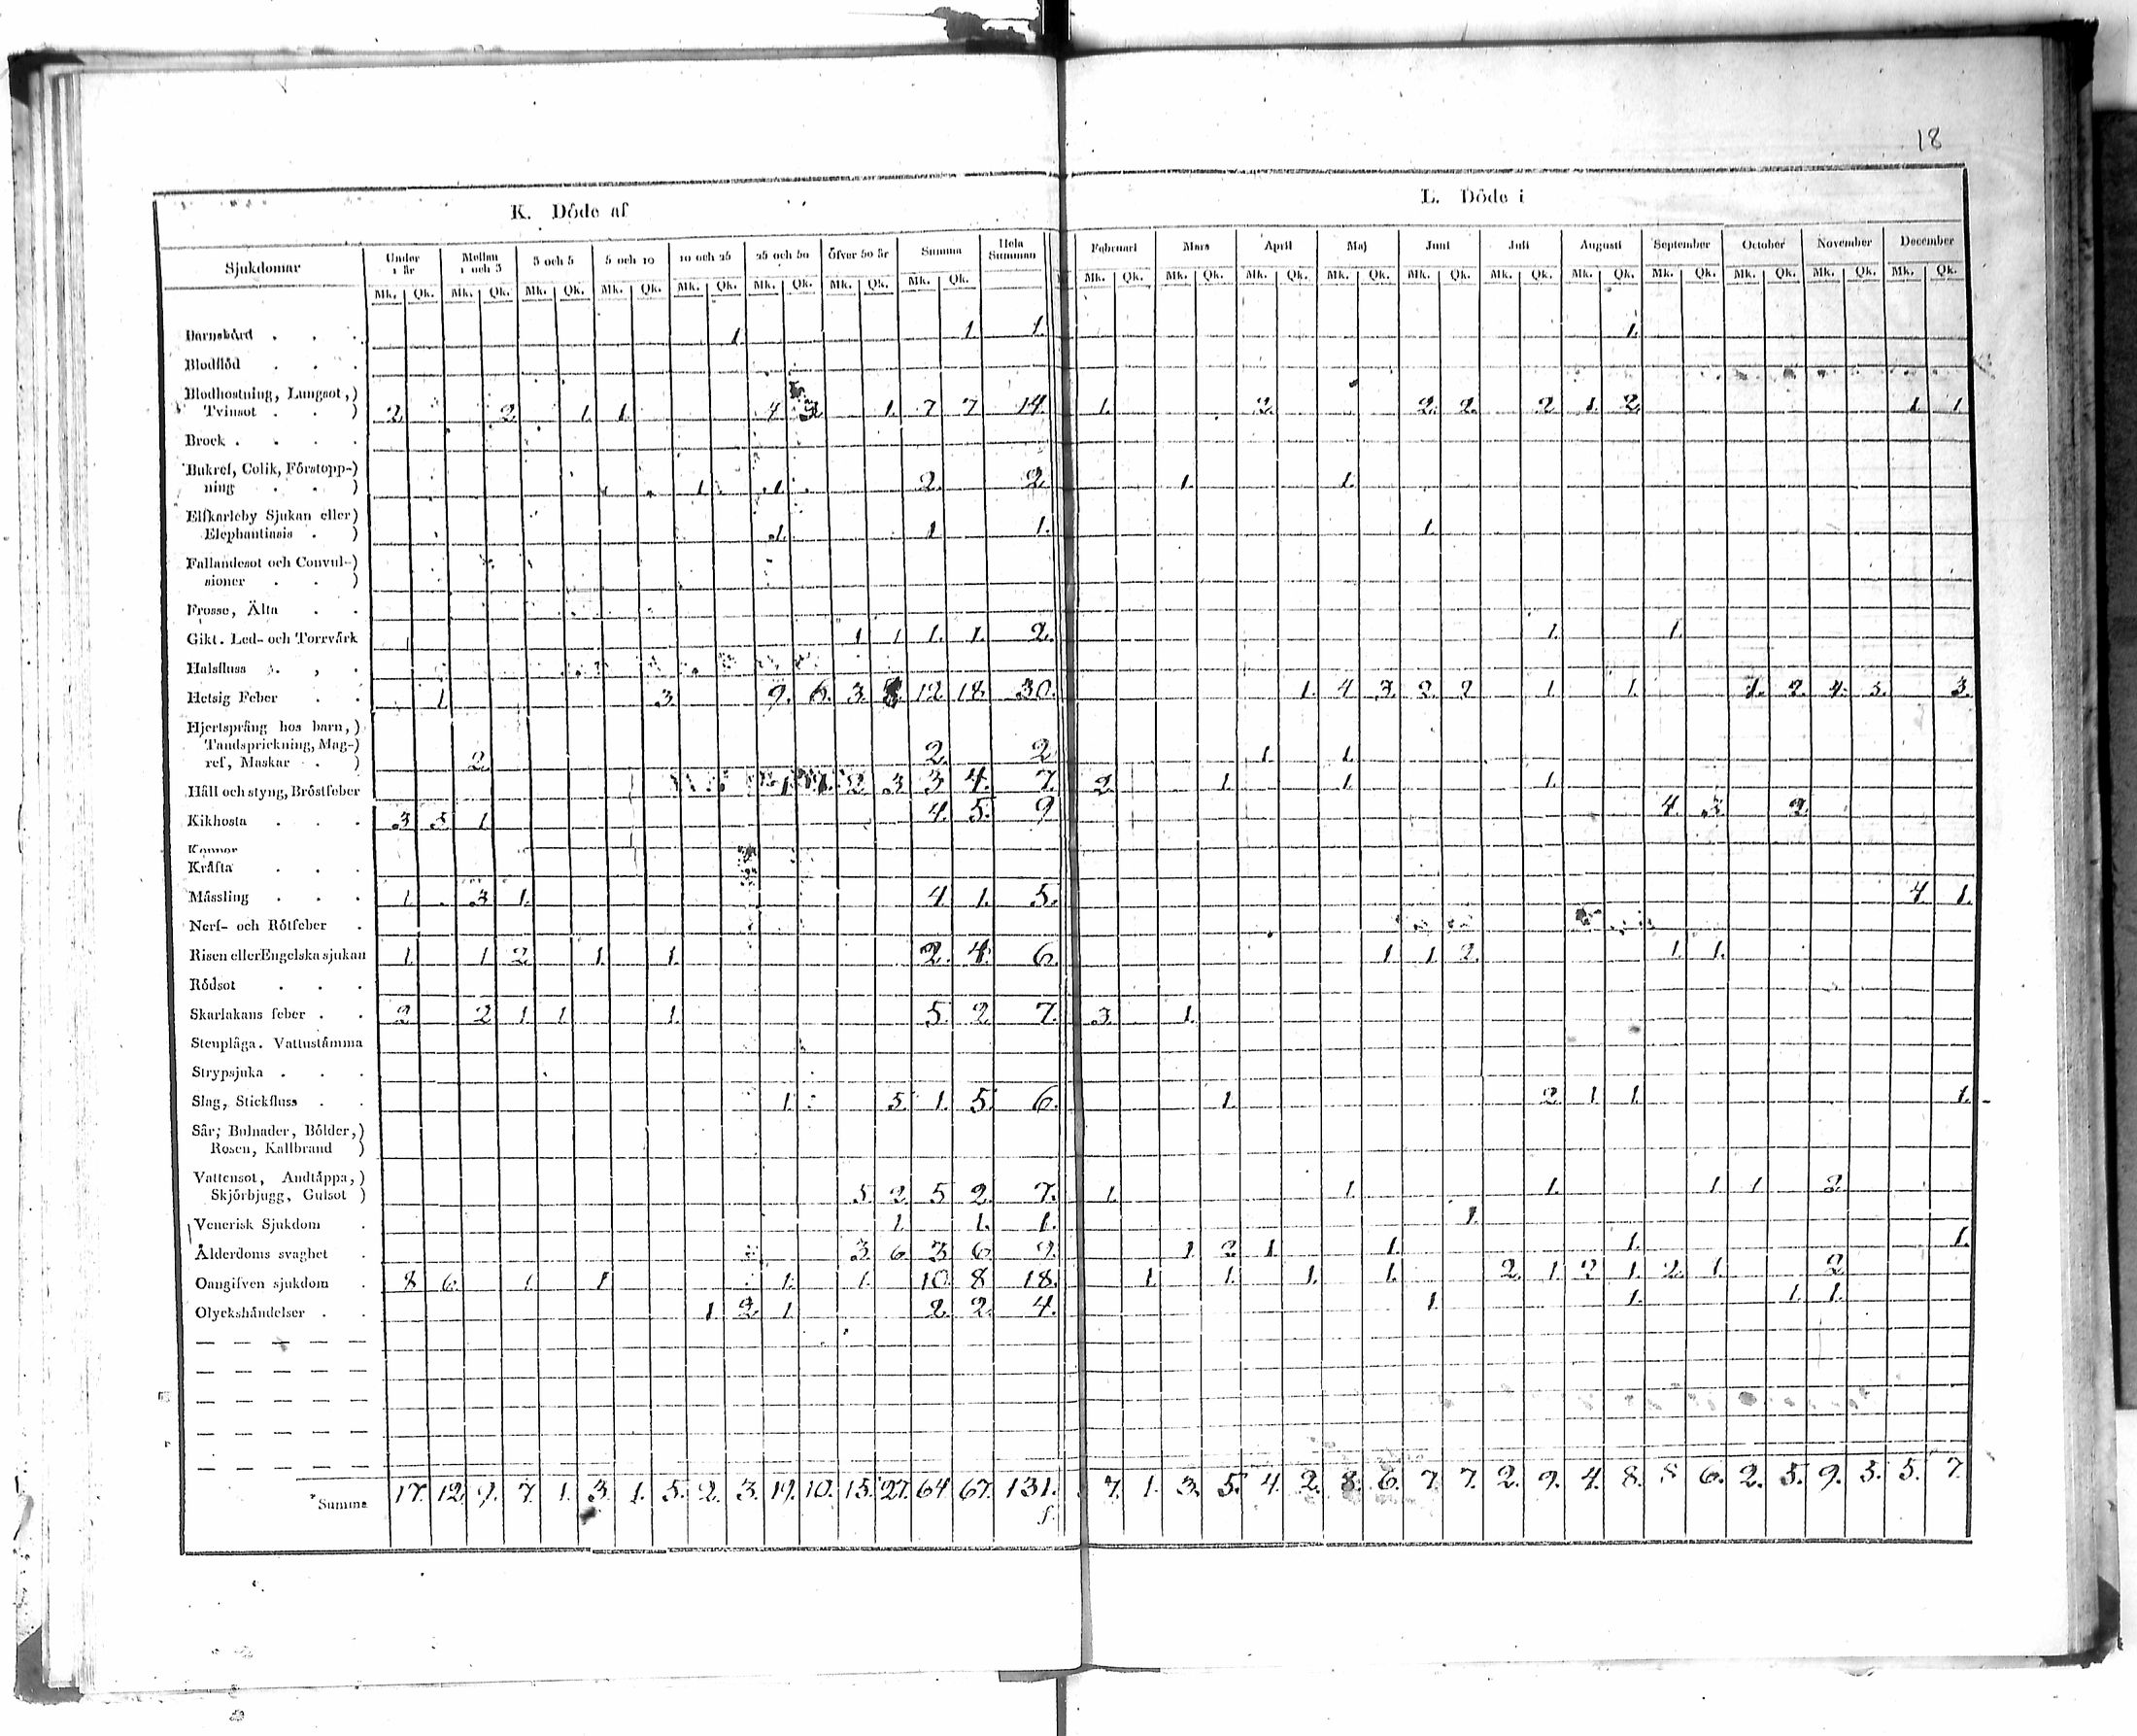 18
K. Döde af
L. Döde i
Sjukdomar Under 1 år Mellan 1 och 3 3 och 5 5 och 10 10 och 25 25 och 50 Öfver 50 år Summa Hela Summan Februari Mars April Maj Juni Juli Augusti September October November December
Mk. Qk. Mk. Qk. Mk. Qk. Mk. Qk. Mk. Qk. Mk. Qk. Mk. Qk. Mk. Qk. Mk. Qk. Mk. Qk. Mk. Qk. Mk. Qk. Mk. Qk. Mk. Qk. Mk. Qk. Mk. Qk. Mk. Qk. Mk. Qk. Mk. Qk.
Barnsbörd . . . 1. 1. 1. 1.
Blodflöd . . .
Blodhostning, Lungsot,)
Tvinsot . . ) 2. 2. 1. 1. 4 1. 7 7 14. 1. 2. 2. 2. 2 1. 2. 1. 1.
Brock . . . .
Bukref, Colik, Förstopp-)
ning . . ) 1. 1. 2. 2. 1. 1.
Elfkarleby Sjukan eller)
Elephantiasis . ) 1. 1. 1. 1.
Fallandesot och Convul-)
sioner . . )
Frosse, Älta . .
Gikt. Led- och Torrvärk 1 1 1. 1. 2. 1. 1.
Halsfluss . , .
Hetsig Feber . . 1. 3. 9. 6. 3. 12. 18. 30. 1. 4 3. 2. 2 1. 1. 1. 2 4. 3. 3.
Hjertsprång hos barn,)
Tandsprickning, Mag-)
ref, Maskar . ) 2. 2. 2. 1. 1.
Håll och styng, Bröstfeber 1. 1. 2. 3. 3 4. 7. 2. 1. 1. 1.
Kikhosta . . . 3 5 1. 4. 5. 9 4. 3. 2.
Koppor
Kräfta . . .
Mässling . . . 1. 3. 1. 4. 1. 5. 4. 1.
Nerf- och Rötfeber .
Risen eller Engelska sjukan 1. 1. 2. 1. 1. 2. 4. 6. 1. 1. 2. 1. 1.
Rödsot . . .
Skarlakans feber . . 2. 2 1. 1. 1. 5. 2. 7. 3. 1.
Stenplåga. Vattustämma
Strypsjuka . . .
Slag, Stickfluss . . 1. 5. 1. 5. 6. 1. 2. 1. 1. 1.
Sår; Bulnader, Bölder,)
Rosen, Kallbrand )
Vattensot, Andtäppa,)
Skjörbjugg, Gulsot ) 5. 2. 5 2. 7. 1. 1. 1. 1. 1. 2.
Venerisk Sjukdom . 1. 1. 1. 1.
Ålderdoms svaghet . 3. 6. 3. 6. 9. 1. 2. 1. 1. 1. 1.
Oangifven sjukdom . 8 6. 1. 1. 1. 1. 10. 8 18. 1. 1. 1. 1. 2. 1. 2. 1. 2. 1. 2.
Olyckshändelser . . 1. 2. 1. 2. 2. 4. 1. 1. 1. 1.
Summa 17. 12. 9. 7. 1. 3. 1. 5. 2. 3. 19. 10. 15. 27. 64 67. 131. 7. 1. 3. 5. 4. 2. 8. 6. 7. 7. 2. 9. 4. 8. 8 6. 2. 5. 9. 3. 5. 7.